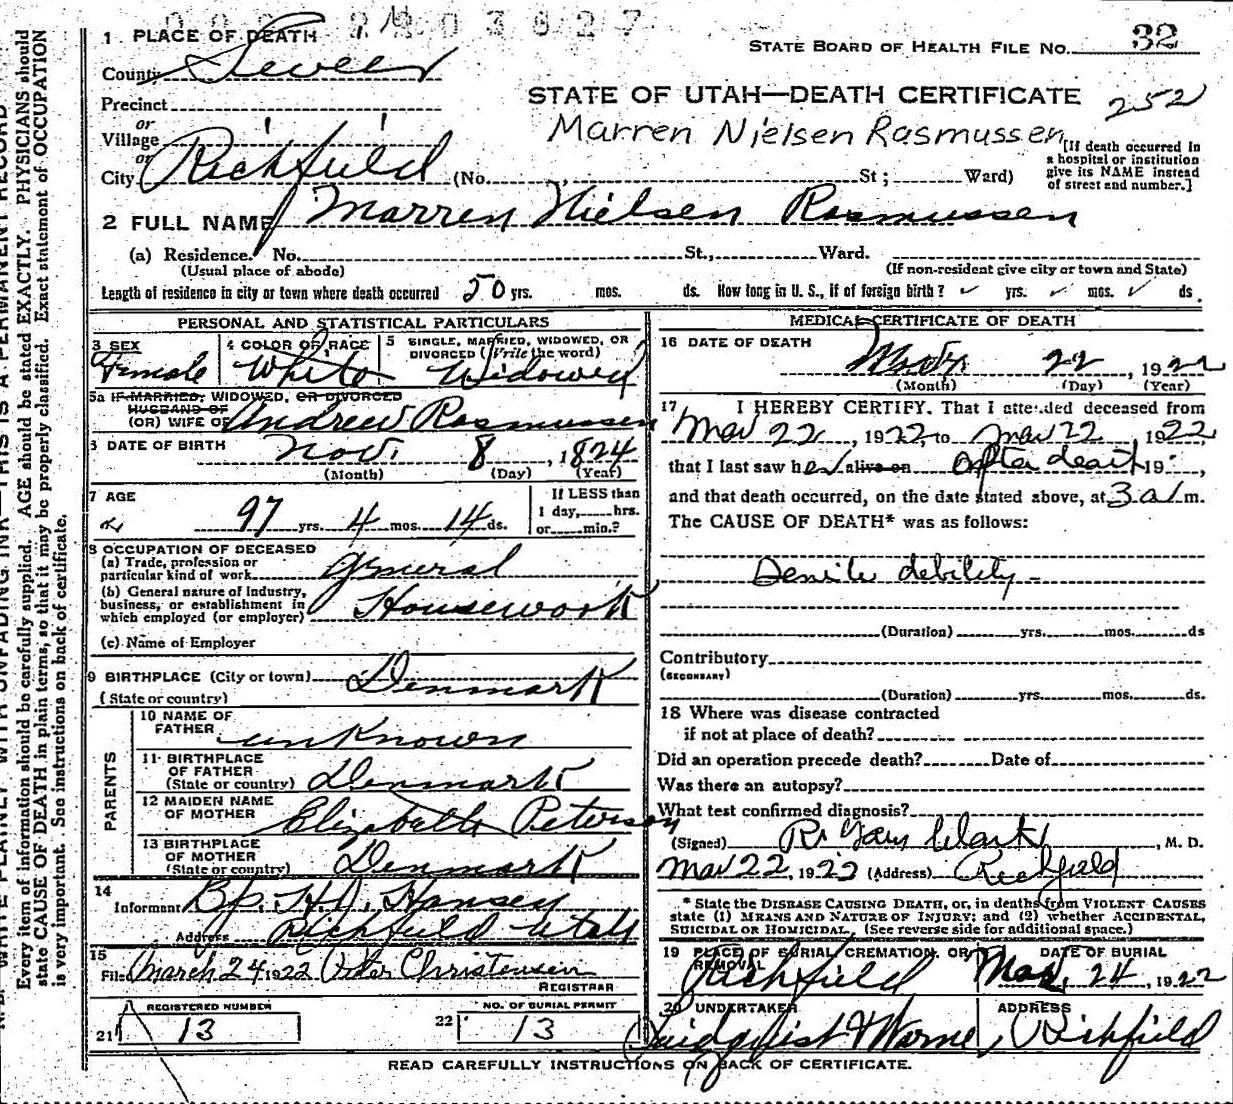 1 PLACE OF DEATH
County Sevier
STATE BOARD OF HEALTH FILE NO. 32
Precinct
STATE OF UTAH—DEATH CERTIFICATE 252
or
Village
Marren Nielsen Rasmussen
or
City Richfield (No. , St ; Ward)
[If death occurred in
a hospital or institution
give its NAME instead
of street and number.]
2 FULL NAME Marren Nielsen Rasmussen
(a) Residence. No. St., Ward.
(Usual place of abode) (If non-resident give city or town and State)
Length of residence in city or town where death occurred 50 yrs. mos. ds. How long in U. S., if of foreign birth? ✓ yrs. ✓ mos. ✓ ds.
PERSONAL AND STATISTICAL PARTICULARS
3 SEX
Female
4 COLOR OR RACE
White
5 SINGLE, MARRIED, WIDOWED, OR
DIVORCED (Write the word)
Widowed
5a IF MARRIED, WIDOWED, OR DIVORCED
HUSBAND OF
(OR) WIFE OF Andrew Rasmussen
6 DATE OF BIRTH Nov. 8, 1824
(Month) (Day) (Year)
7 AGE
97 yrs. 4 mos. 14 ds.
If LESS than
1 day, hrs.
or min.?
8 OCCUPATION OF DECEASED
(a) Trade, profession or
particular kind of work General
(b) General nature of Industry,
business, or establishment in
which employed (or employer) Housework
(c) Name of Employer
9 BIRTHPLACE (City or town) Denmark
(State or country)
PARENTS
10 NAME OF
FATHER unknown
11 BIRTHPLACE
OF FATHER
(State or country) Denmark
12 MAIDEN NAME
OF MOTHER Elizabeth Peterson
13 BIRTHPLACE
OF MOTHER
(State or country) Denmark
14
Informant Bp. H.J. Hansen
Address Richfield Utah
15
File March 24 1922 Victor Christensen
REGISTRAR
REGISTERED NUMBER
21 13
NO. OF BURIAL PERMIT
22 13
MEDICAL CERTIFICATE OF DEATH
16 DATE OF DEATH
22, 1922
(Month) (Day) (Year)
17 I HEREBY CERTIFY, That I attended deceased from
Mar 22, 1922 to Mar 22, 1922
that I last saw her alive on after death, 19 ,
and that death occurred, on the date stated above, at 3 a.m.
The CAUSE OF DEATH* was as follows:
Senile debility
(Duration) yrs. mos. ds
Contributory
(SECONDARY)
(Duration) yrs. mos. ds.
18 Where was disease contracted
if not at place of death?
Did an operation precede death? Date of
Was there an autopsy?
What test confirmed diagnosis?
(Signed) R. Clark, M. D.
Mar 22, 1922 (Address) Richfield
* State the DISEASE CAUSING DEATH, or, in deaths from VIOLENT CAUSES
state (1) MEANS AND NATURE OF INJURY; and (2) whether ACCIDENTAL,
SUICIDAL OR HOMICIDAL. (See reverse side for additional space.)
19 PLACE OF BURIAL, CREMATION, OR
REMOVAL
Richfield
DATE OF BURIAL
Mar. 24, 1922
20 UNDERTAKER
& Warne,
ADDRESS
Richfield
READ CAREFULLY INSTRUCTIONS ON BACK OF CERTIFICATE.
Every item of information should be carefully supplied. AGE should be stated EXACTLY. PHYSICIANS should
state CAUSE OF DEATH in plain terms, so that it may be properly classified. Exact statement of OCCUPATION
is very important. See instructions on back of certificate.